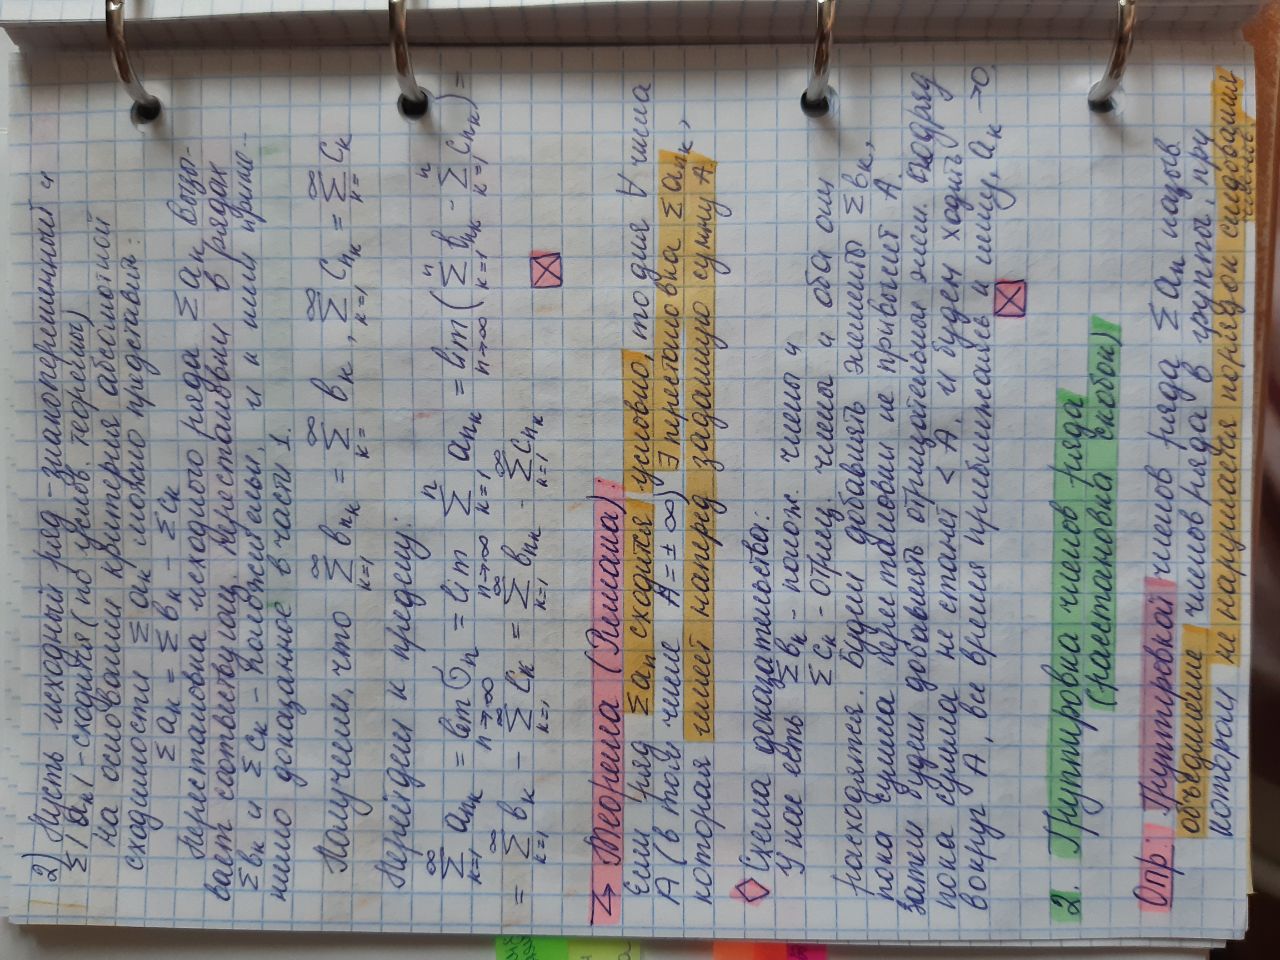 2) Пусть исходный ряд - знакопеременный и
Σ|aₖ| - сходится (по услов. теоремы)
На основании критерия абсолютной
сходимости Σ aₖ можно представить:
Σ aₖ = Σ вₖ - Σ cₖ
Перестановка исходного ряда Σ aₖ вызы-
вает соотвествующ. перестановки в рядах
Σ вₖ и Σ cₖ - положительн, и к ним приме-
нимо доказанное в части 1.
Получим, что ∞Σk=1 в_{nₖ} = ∞Σk= вₖ , ∞Σk=1 c_{nₖ} = ∞Σk= cₖ
Перейдем к пределу:
∞Σk=1 a_{nₖ} = lim n→∞ σₙ = lim n→∞ nΣk=1 a_{nₖ} = lim n→∞ (nΣk=1 в_{nₖ} - nΣk=1 c_{nₖ}) =
= ∞Σk=1 вₖ - ∞Σk=1 cₖ = ∞Σk=1 в_{nₖ} - ∞Σk=1 c_{nₖ}
Теорема (Римана):
Если ряд Σaₙ сходится условно, то для ∀ числа
A (в том числе A = ± ∞) ∃ перестановка Σ a_{nₖ},
которая имеет наперед заданную сумму A.
Схема доказательства:
У нас есть Σ вₖ - полож. члены и
Σ cₖ - отриц. члены и оба они
расходятся. Будем добавлять элементы Σ вₖ,
пока сумма перестановки не привысит A.
Затем будем добавлять отрицательные элем. подряд
пока сумма не станет < A, и будем ходить
вокруг A, все время приближаясь к нему, aₖ → 0.
2. Группировка членов ряда
(расстановка скобок)
Опр: Группировкой членов ряда Σ aₙ назыв.
объединение членов ряда в группы, при
котором не нарушается порядок следования
членов.